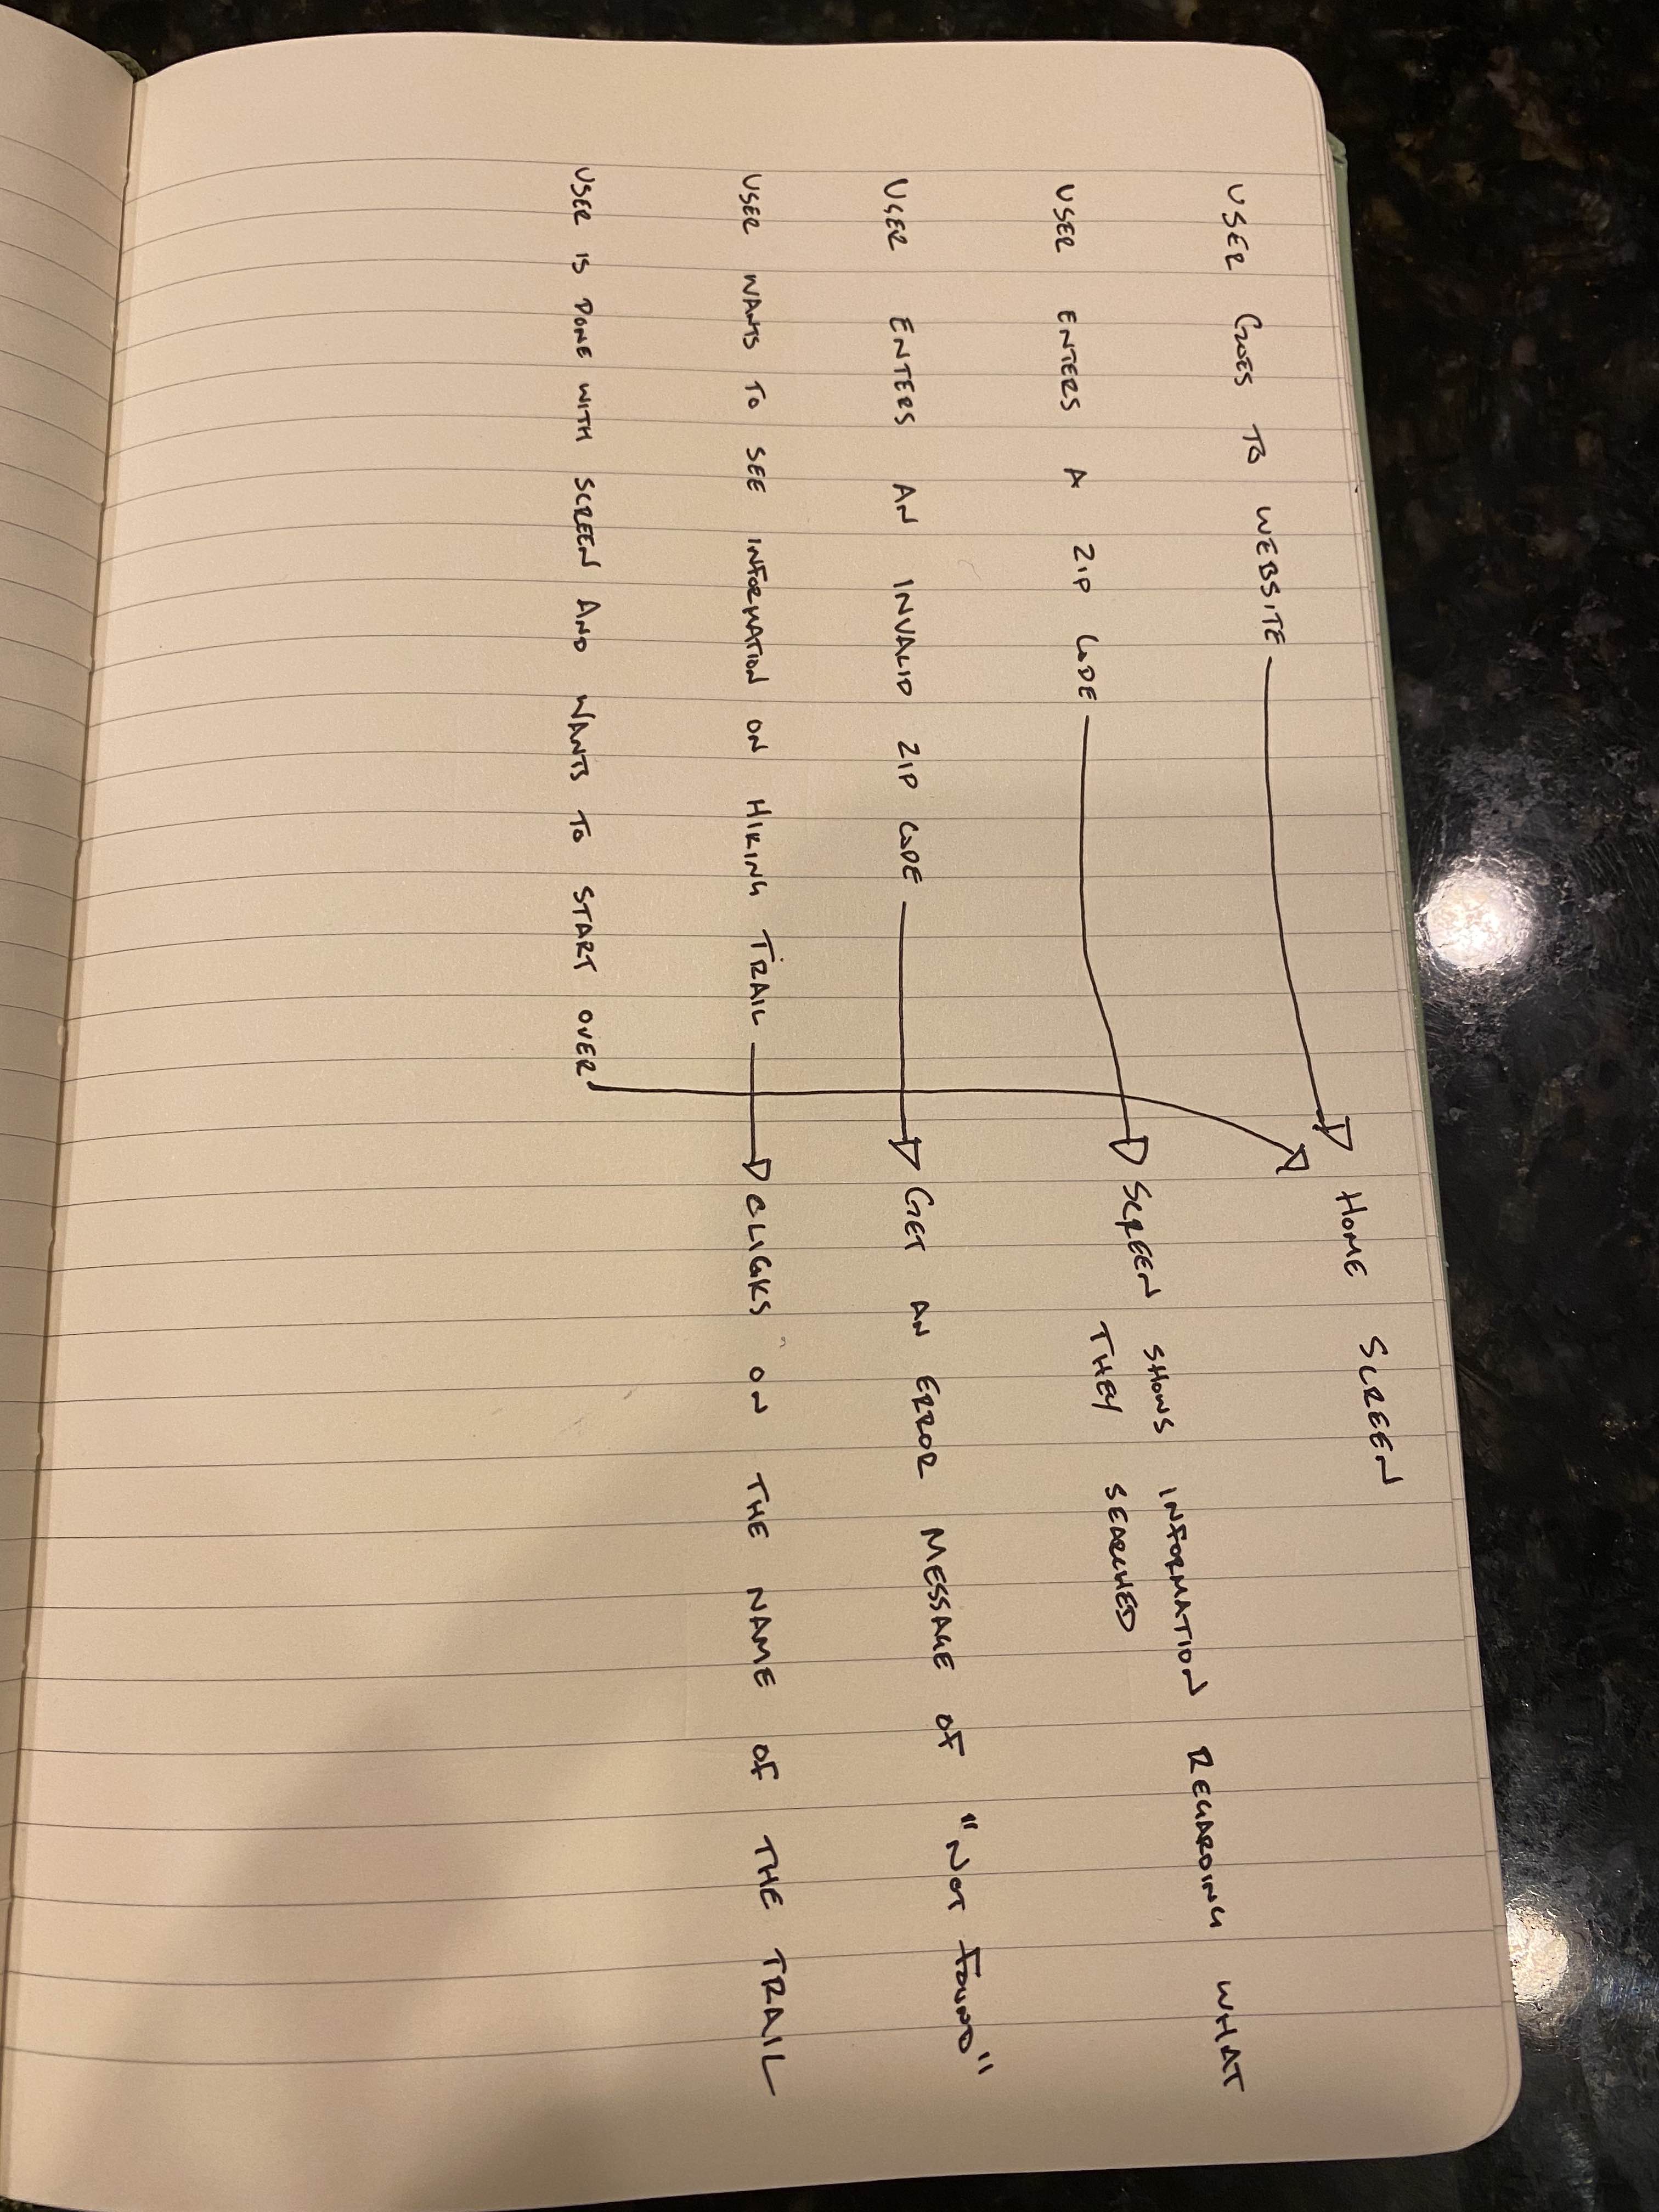 USER GOES TO WEBSITE → HOME SCREEN
USER ENTERS A ZIP CODE → SCREEN SHOWS INFORMATION REGARDING WHAT
THEY SEARCHED
USER ENTERS AN INVALID ZIP CODE → GET AN ERROR MESSAGE OF "NOT FOUND"
USER WANTS TO SEE INFORMATION ON HIKING TRAIL → CLICKS ON THE NAME OF THE TRAIL
USER IS DONE WITH SCREEN AND WANTS TO START OVER